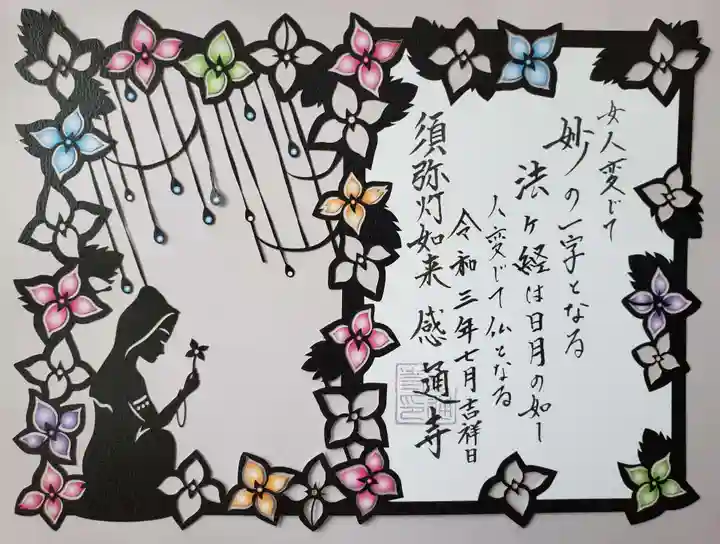 女人変じて
妙の一字となる
法ケ経は日月の如し
人変じて仏となる
令和三年七月吉祥日
須弥灯如来 感通寺